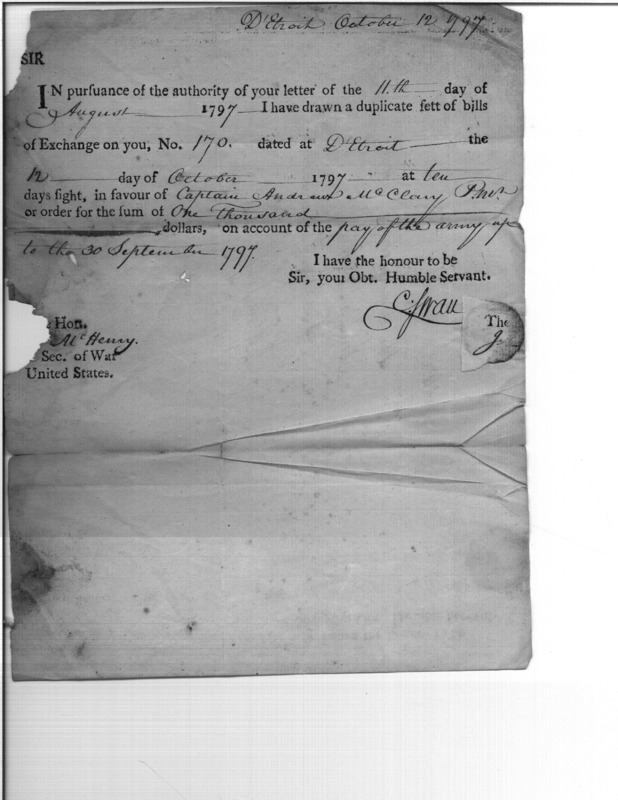 D'Etroit October 12 1797.
SIR
IN purſuance of the authority of your letter of the 11.th day of
August 1797 I have drawn a duplicate ſett of bills
of Exchange on you, No. 170. dated at D'Etroit the
12 day of October 1797 at ten
days ſight, in favour of Captain Andrew McClary
or order for the ſum of One thousand
dollars, on account of the pay of the army up
to the 30 September 1797.
I have the honour to be
Sir, your Obt. Humble Servant.
C. Swan
Hon.
McHenry.
Sec. of War
United States.
The